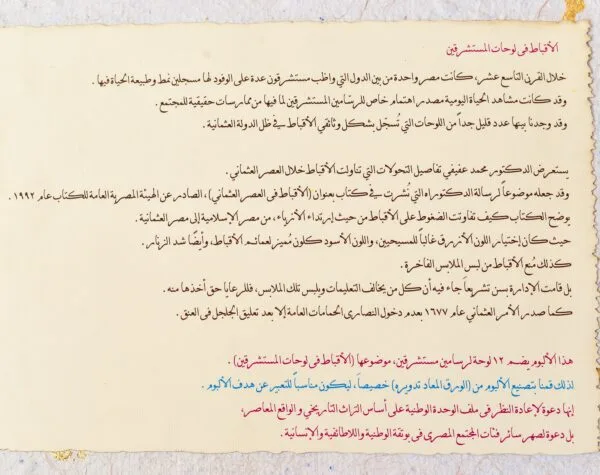 الأقباط فى لوحات المستشرقين
خلال القرن التاسع عشر، كانت مصر واحدة من بين الدول التي واظب مستشرقون عدة على الوفود لها مسجلين نمط وطبيعة الحياة فيها .
وقد كانت مشاهد الحياة اليومية مصدر اهتمام خاص للرسامين المستشرقين لما فيها من ممارسات حقيقية للمجتمع .
وقد وجدنا بينها عدد قليل جداً من اللوحات التي تُسجّل بشكل وثائقي الأقباط في ظل الدولة العثمانية .
يستعرض الدكتور محمد عفيفي تفاصيل التحولات التي تناولت الأقباط خلال العصر العثماني .
وقد جعله موضوعاً لرسالة الدكتوراه التي نُشرت في كتاب بعنوان (الأقباط في العصر العثماني) ، الصادر عن الهيئة المصرية العامة للكتاب عام ١٩٩٢ .
يوضح الكتاب كيف تفاوتت الضغوط على الأقباط من حيث إرتداء الأزياء، من مصر الإسلامية إلى مصر العثمانية .
حيث كان إختيار اللون الأزرق غالباً للمسيحيين، واللون الأسود كلون مُميز لعمائم الأقباط، وأيضًا شد الزنار .
كذلك مُنع الأقباط من لبس الملابس الفاخرة .
بل قامت الإدارة بسن تشريعاً جاء فيه أن كل من يخالف التعليمات ويلبس تلك الملابس، فللرعايا حق أخذها منه .
كما صدر الأمر العثماني عام ١٦٧٧ بعدم دخول النصارى الحمامات العامة إلا بعد تعليق الجلجل فى العنق .
هذا الألبوم يضم ١٢ لوحة لرسامين مستشرقين، موضوعها (الأقباط فى لوحات المستشرقين) .
لذلك قمنا بتصنيع الألبوم من (الورق المعاد تدويره) خصيصاً، ليكون مناسباً للتعبير عن هدف الألبوم .
إنها دعوة لإعادة النظر فى ملف الوحدة الوطنية على أساس التراث التاريخي والواقع المعاصر،
بل دعوة لصهر سائر فئات المجتمع المصرى فى بوتقة الوطنية واللاطائفية والإنسانية .